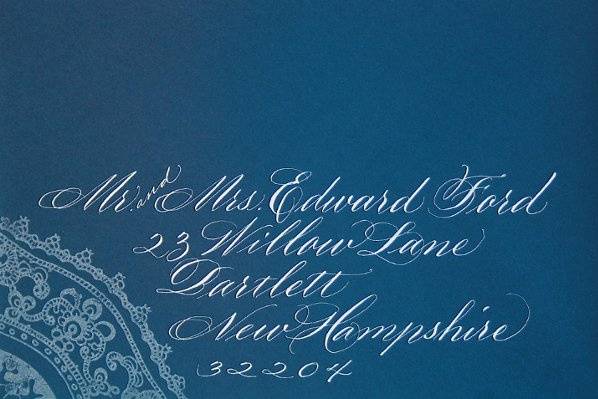 Mr. and Mrs. Edward Ford
23 Willow Lane
Bartlett
New Hampshire
32204